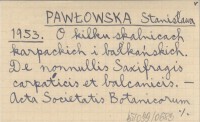 PAWŁOWSKA Stanisława
1953. O kilku skalnicach
karpackich i bałkańskich.
De nonnullis Saxifragis
carpaticis et balcanicis. —
Acta Societatis Botanicorum
·/.